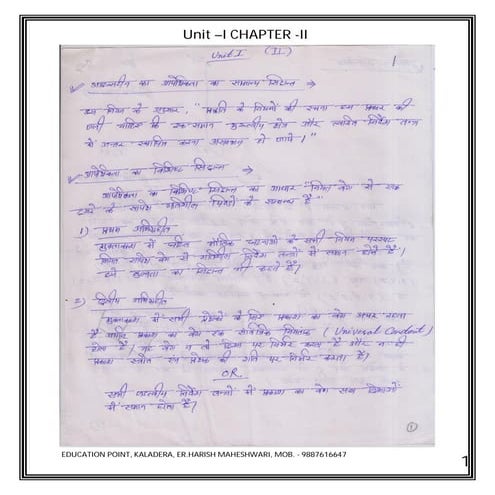 Unit –I CHAPTER -II
Unit-I (II)
1
आइन्स्टीन का आपेक्षिकता का सामान्य सिद्धान्त →
इस नियम के अनुसार, "प्रकृति के नियमों की रचना इस प्रकार की
जानी चाहिए कि एक समान गुरुत्वीय क्षेत्र और त्वरित निर्देश तन्त्र
में अन्तर स्थापित करना असम्भव हो जाये।"
आपेक्षिकता का विशिष्ट सिद्धान्त →
आपेक्षिकता का विशिष्ट सिद्धान्त का आधार "नियत वेग से एक
दूसरे के सापेक्ष गतिशील निकायों के सम्बन्ध है"
1) प्रथम अभिगृहीत
मुक्ताकाश में घटित भौतिक घटनाओं के सभी नियम परस्पर
नियत सापेक्ष वेग से गतिशील निर्देश तन्त्रों में समान होते हैं।
इसे तुल्यता का सिद्धान्त भी कहते हैं।
2) द्वितीय अभिगृहीत
मुक्ताकाश में सभी प्रेक्षकों के लिए प्रकाश का वेग अचर रहता
है अर्थात प्रकाश का वेग एक सार्वत्रिक नियतांक (Universal Constant)
होता है। यह वेग न तो दिशा पर निर्भर करता है और न ही
प्रकाश स्त्रोत एवं प्रेक्षक की गति पर निर्भर करता है।
OR
सभी जड़त्वीय निर्देश तन्त्रों में प्रकाश का वेग सभी दिशाओं
में समान होता है।
1
EDUCATION POINT, KALADERA, ER.HARISH MAHESHWARI, MOB. - 9887616647
1